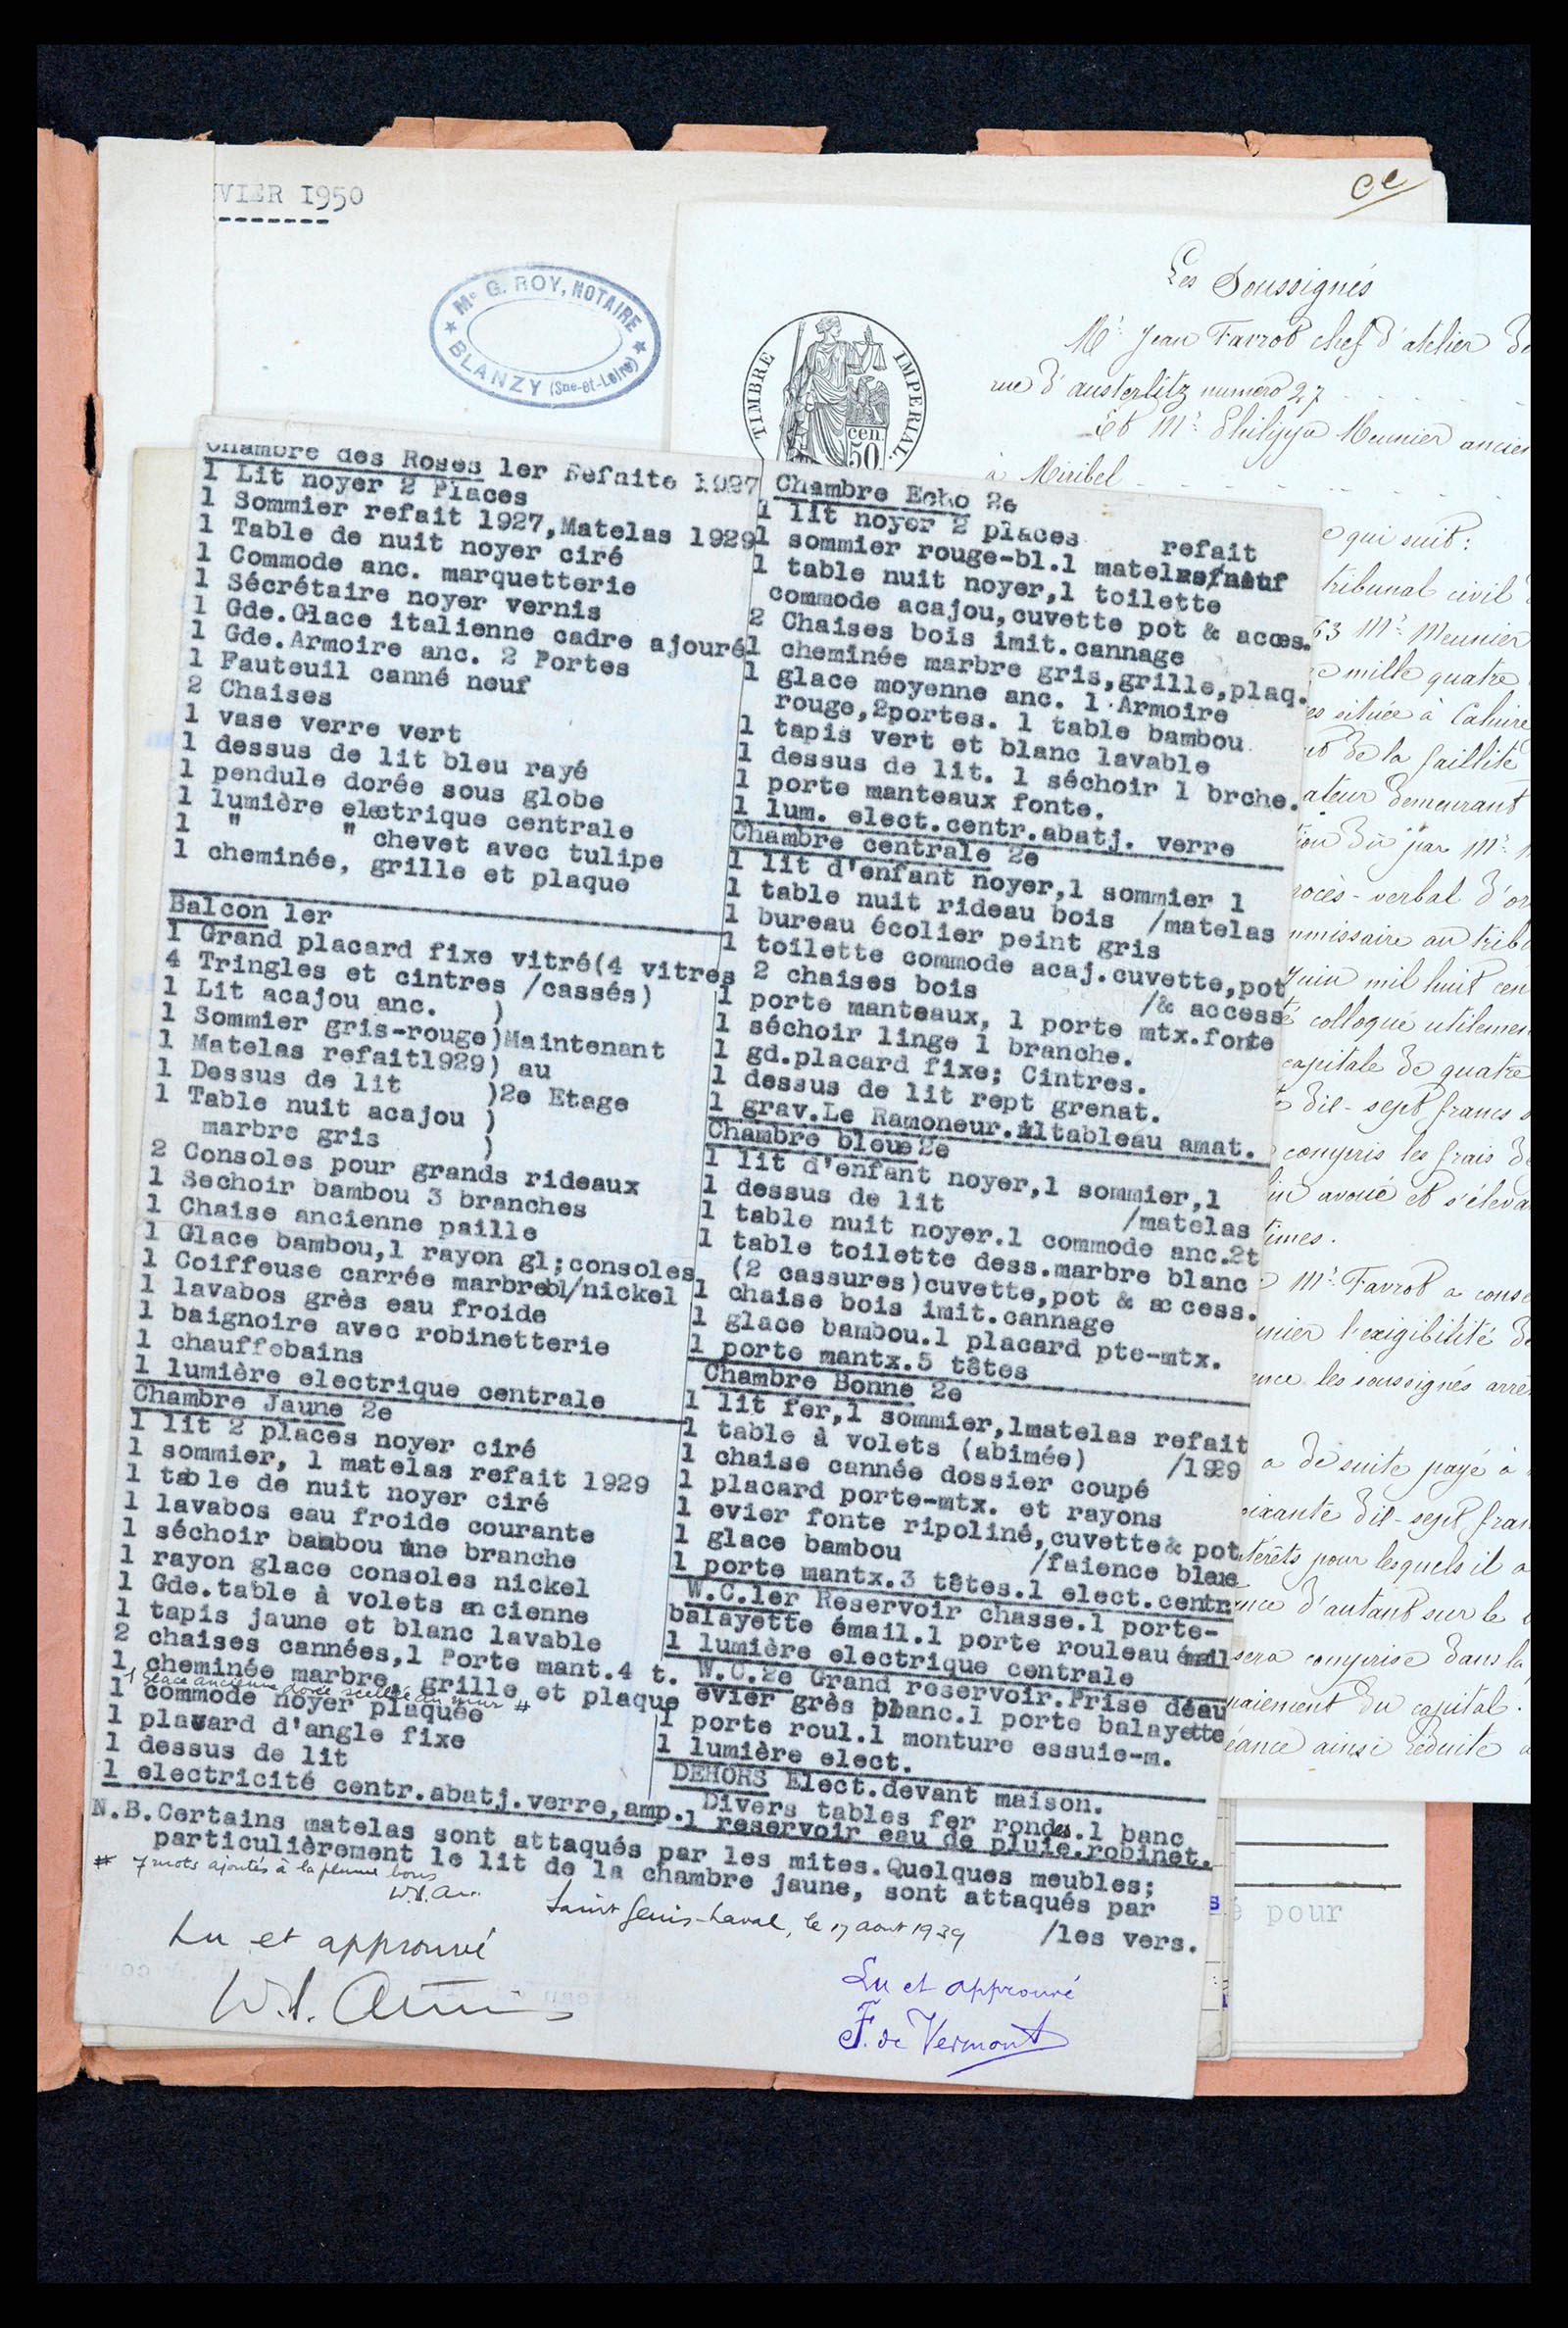 VIER 1950
Ce
Me G. ROY, NOTAIRE
BLANZY (Sne-et-Loire)
TIMBRE IMPERIAL
50 cen
Les Soussignés
Mr Jean Favrot chef d'atelier
rue d'austerlitz numero 27
Et Mr Philippe Meunier ancien
à Miribel
qui suit:
tribunal civil
63 Mr Meunier
mille quatre
située à Caluire
de la faillite
ateur demeurant
par Mr
rocès-verbal d'or
mmissaire au trib
juin mil huit cen
colloqué utilemen
capitale de quatre
dix-sept francs
compris les frais de
avoué et s'éleva
times.
Mr Favrot a conse
unier l'exigibilité de
ence les soussignés arrê
a de suite payé à
oixante dix-sept fran
térêts pour lesquels il a
ance d'autant sur le
sera comprise dans la
paiement du capital.
éance ainsi réduite
Chambre des Roses 1er Refaite 1927
1 Lit noyer 2 Places
1 Sommier refait 1927, Matelas 1929
1 Table de nuit noyer ciré
1 Commode anc. marquetterie
1 Sécrétaire noyer vernis
1 Gde.Glace italienne cadre ajouré
1 Gde.Armoire anc. 2 Portes
1 Fauteuil canné neuf
2 Chaises
1 vase verre vert
1 dessus de lit bleu rayé
1 pendule dorée sous globe
1 lumière electrique centrale
1 " " chevet avec tulipe
1 cheminée, grille et plaque
Balcon 1er
1 Grand placard fixe vitré(4 vitres
4 Tringles et cintres /cassés)
1 Lit acajou anc. )
1 Sommier gris-rouge)Maintenant
1 Matelas refait1929) au
1 Dessus de lit )2e Etage
1 Table nuit acajou )
marbre gris )
2 Consoles pour grands rideaux
1 Sechoir bambou 3 branches
1 Chaise ancienne paille
1 Glace bambou,1 rayon gl;consoles
1 Coiffeuse carrée marbrebl/nickel
1 lavabos grès eau froide
1 baignoire avec robinetterie
1 chauffebains
1 lumière electrique centrale
Chambre Jaune 2e
1 lit 2 places noyer ciré
1 sommier, 1 matelas refait 1929
1 table de nuit noyer ciré
1 lavabos eau froide courante
1 séchoir bambou une branche
1 rayon glace consoles nickel
1 Gde.table à volets ancienne
1 tapis jaune et blanc lavable
2 chaises cannées,1 Porte mant.4 t.
1 cheminée marbre, grille et plaque
1 Glace ancienne dorée scellée au mur #
1 commode noyer plaquée
1 placard d'angle fixe
1 dessus de lit
1 electricité centr.abatj.verre,amp.
Chambre Echo 2e
1 lit noyer 2 places refait
1 sommier rouge-bl.1 matelas/neuf
1 table nuit noyer,1 toilette
commode acajou,cuvette pot & acces.
2 Chaises bois imit.cannage
1 cheminée marbre gris,grille,plaq.
1 glace moyenne anc. 1 Armoire
rouge,2portes. 1 table bambou
1 tapis vert et blanc lavable
1 dessus de lit. 1 séchoir 1 brche.
1 porte manteaux fonte.
1 lum. elect.centr.abatj. verre
Chambre centrale 2e
1 lit d'enfant noyer,1 sommier 1
1 table nuit rideau bois /matelas
1 bureau écolier peint gris
1 toilette commode acaj.cuvette,pot
2 chaises bois /& access
1 porte manteaux, 1 porte mtx.fonte
1 séchoir linge 1 branche.
1 gd.placard fixe; Cintres.
1 dessus de lit rept grenat.
1 grav.Le Ramoneur.1tableau amat.
Chambre bleue 2e
1 lit d'enfant noyer,1 sommier,1
1 dessus de lit /matelas
1 table nuit noyer.1 commode anc.2t
1 table toilette dess.marbre blanc
(2 cassures)cuvette,pot & access.
1 chaise bois imit.cannage
1 glace bambou.1 placard pte-mtx.
1 porte mantx.5 têtes
Chambre Bonne 2e
1 lit fer,1 sommier,1matelas refait
1 table à volets (abimée) /1929
1 chaise cannée dossier coupé
1 placard porte-mtx. et rayons
1 evier fonte ripoliné,cuvette& pot
1 glace bambou /faience bleue
1 porte mantx.3 têtes.1 elect.centr
W.C.1er Reservoir chasse.1 porte-
balayette émail.1 porte rouleau émail
1 lumière electrique centrale
W.C.2e Grand reservoir.Prise déau
evier grès blanc.1 porte balayette
1 porte roul.1 monture essuie-m.
1 lumière elect.
DEHORS Elect.devant maison.
Divers tables fer rondes.1 banc
1 reservoir eau de pluie.robinet.
N.B.Certains matelas sont attaqués par les mites.Quelques meubles;
particulièrement le lit de la chambre jaune, sont attaqués par
/les vers.
# 7 mots ajoutés à la plume bons
Saint Genis-Laval, le 17 août 1939
Lu et approuvé
Lu et approuvé
F. de Vermont
é pour